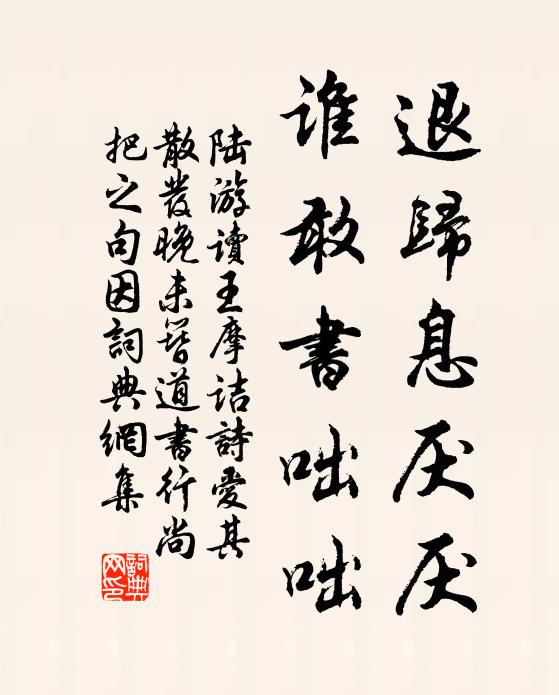 退歸息厌厌
谁敢書咄咄
陆游讀王摩诘詩愛其
散发晚未簪道書行尚
把之句因詞典網集
詞典网印